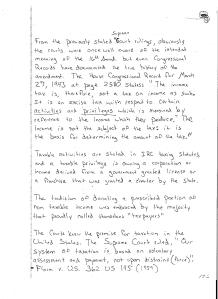 Summary
From the previously stated Court rulings, obviously
the courts were once well aware of the intended
meaning of the 16th Amend. but even Congressional
Records have documented the true history of the
amendment. The House Congressional Record for March
27, 1943 at page 2580 states "The income
tax is, therefore, not a tax on income as such.
It is an excise tax with respect to certain
activities and privileges which is measured by
reference to the income which they produce. The
income is not the subject of the tax: it is
the basis for determining the amount of the tax."
Taxable activities are stated in IRC taxing statutes
and a taxable privilege is owning a corporation or
income derived from a government granted license or
a franchise that was granted a similar by the state.
The tradition of donating a prescribed portion of
non taxable income was embraced by the majority
that proudly called themselves "taxpayers"
The Courts knew the premise for taxation in the
United States. The Supreme Court ruled, "Our
system of taxation is based on voluntary
assessment and payment, not upon distraint (force)"
Flora v. U.S. 362 US 145 (1959)